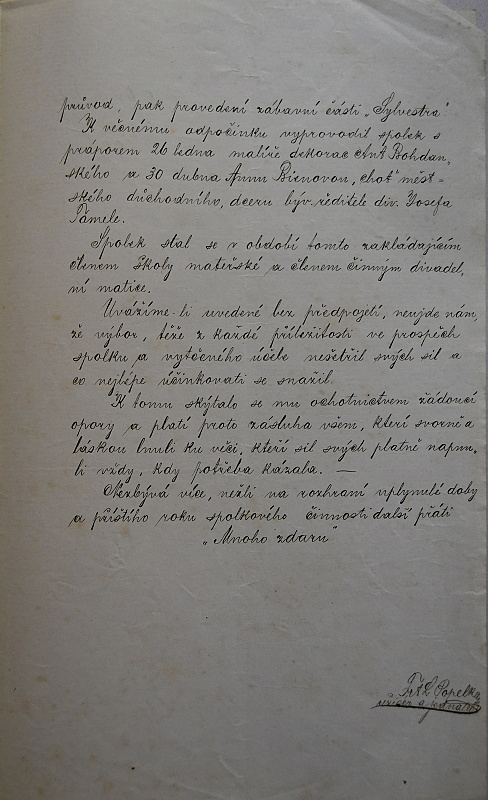 průvod, pak provedení zábavní části „Sylvestra“
K věčnému odpočinku vyprovodil spolek s
práporem 26 ledna malíře dekorac Ant. Bohdan,
ského a 30 dubna Annu Bienovou, choť měst=
ského důchodního, dceru býv. ředitele div. Josefa
Pamele.
Spolek stal se v období tomto zakládajícím
členem školy mateřské a členem činným divadel,
ní matice.
Uvážíme-li uvedené bez předpojetí, neujde nám,
že výbor, těže z každé příležitosti ve prospěch
spolku a vytčeného účele nešetřil svých sil a
co nejlépe účinkovati se snažil.
K tomu skýtalo se mu ochotnictvem žádoucí
opory a platí proto zásluha všem, kteří svorně a
láskou lnuli ku věci, kteří sil svých platně napnu,
li vždy, kdy potřeba kázala. —
Nezbývá více, nežli na rozhraní uplynulé doby
a příštího roku spolkového činnosti další přáti
„Mnoho zdaru“
Popelka
režiser a jednatel